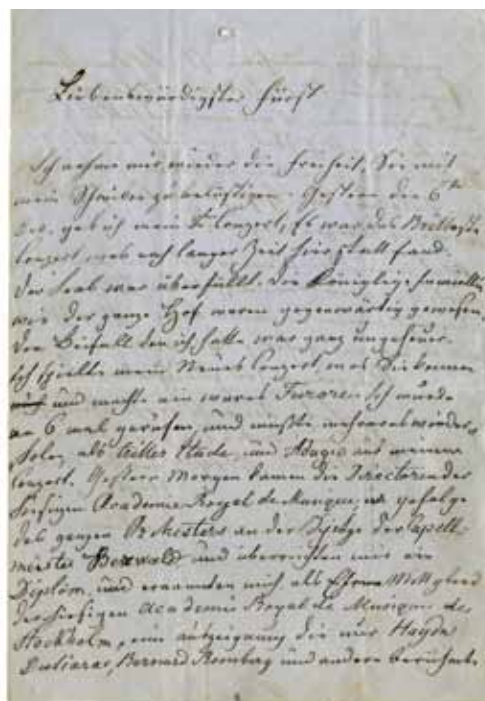 Liebenswürdigster Fürst
Ich nehme mir wieder die Freiheit, Sie mit
mein Schreiben zu belästigen. Gestern den 6ten
gab ich mein Conzert, Es war das Brillanteste
Conzert, was nach langer Zeit hier statt fand.
Der Saal war überfüllt. Die Königliche Familie
wie der ganze Hof waren gegenwärtig gewesen,
Den Beifall den ich hatte war ganz ungeheuer.
Ich spielte mein Neues Conzert, was Sie kennen
und machte ein wares Furore. Ich wurde
an 6 mal gerufen, und mußte mehreres wieder-
holen, als Etude, und Adagio aus meinem
Conzert. Gestern Morgen kamen die Directoren der
hiesigen Academie Royal de Musique, gefolge
des ganzen Orchesters an der Spitze der Capell-
meister Berwald und überreichten mir ein
Diplom, und ernannten mich als Ehren Mittglied
der hiesigen Academie Royal de Musique de
Stockholm, eine die nur Haydn
Bernard Romberg und andere berühmte